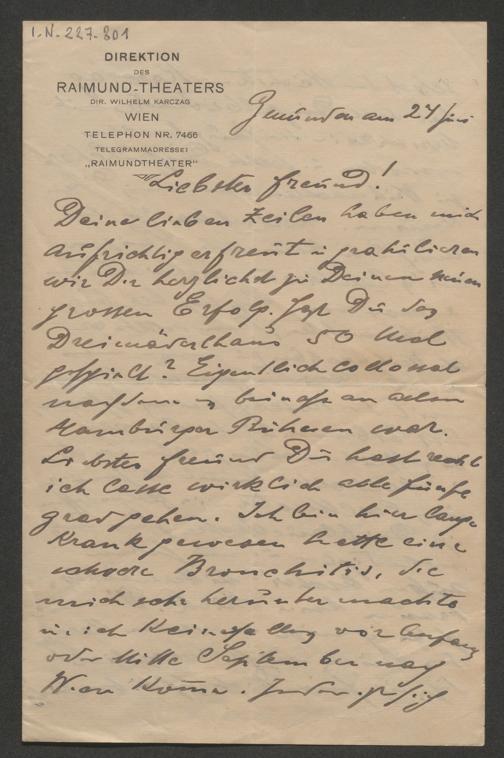 I.N. 227.801
DIREKTION
DES
RAIMUND-THEATERS
DIR. WILHELM KARCZAG
WIEN
TELEPHON NR. 7466
TELEGRAMMADRESSE:
„RAIMUNDTHEATER"
Gmunden am 24 Juni
Liebster Freund!
Deine lieben Zeilen haben mich
aufrichtig erfreut u gratulieren
wir Dir herzlichst zu Deinem neuen
grossen Erfolg. Hast Du das
Dreimäderlhaus 50 Mal
gespielt? Eigentlich collossal
nachdem es beinahe an allen
Hamburger Bühnen war.
Liebster Freund Du hast recht
ich lasse wirklich alle fünfe
grad gehen. Ich bin hier lange
Krank gewesen hatte eine
schwere Bronchitis, die
mich sehr herunter machte
u. ich Keinesfalls vor Anfang
oder Mitte September nach
Wien Komme.